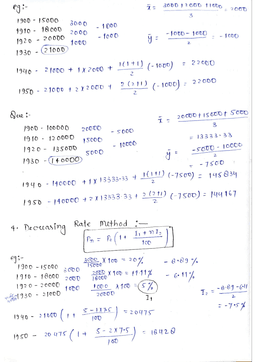 eg:-
x̄ = 3000 + 2000 + 1000 / 3 = 2000
1900 - 15000 3000
1910 - 18000 2000 - 1000
1920 - 20000 1000 - 1000
1930 - 21000
ȳ = -1000 - 1000 / 2 = -1000
1940 - 21000 + 1 x 2000 + 1(1+1)/2 (-1000) = 22000
1950 - 21000 + 2 x 2000 + 2(2+1)/2 (-1000) = 22000
Que:-
x̄ = 20000 + 15000 + 5000 / 3
= 13333.33
1900 - 100000 20000
1910 - 120000 15000 - 5000
1920 - 135000 5000 - 10000
1930 - 140000
ȳ = -5000 - 10000 / 2
= -7500
1940 - 140000 + 1 x 13333.33 + 1(1+1)/2 (-7500) = 145834
1950 - 140000 + 2 x 13333.33 + 2(2+1)/2 (-7500) = 144167
4. Decreasing Rate Method :-
eg:-
1900 - 15000 3000 3000/15000 x 100 = 20% - 8.89%
1910 - 18000 2000 2000/18000 x 100 = 11.11% - 6.11%
1920 - 20000 1000 1000/20000 x 100 = 5%
1930 - 21000
= -7.5%
1940 - 21000 = 20475
1950 - 20475 = 18428